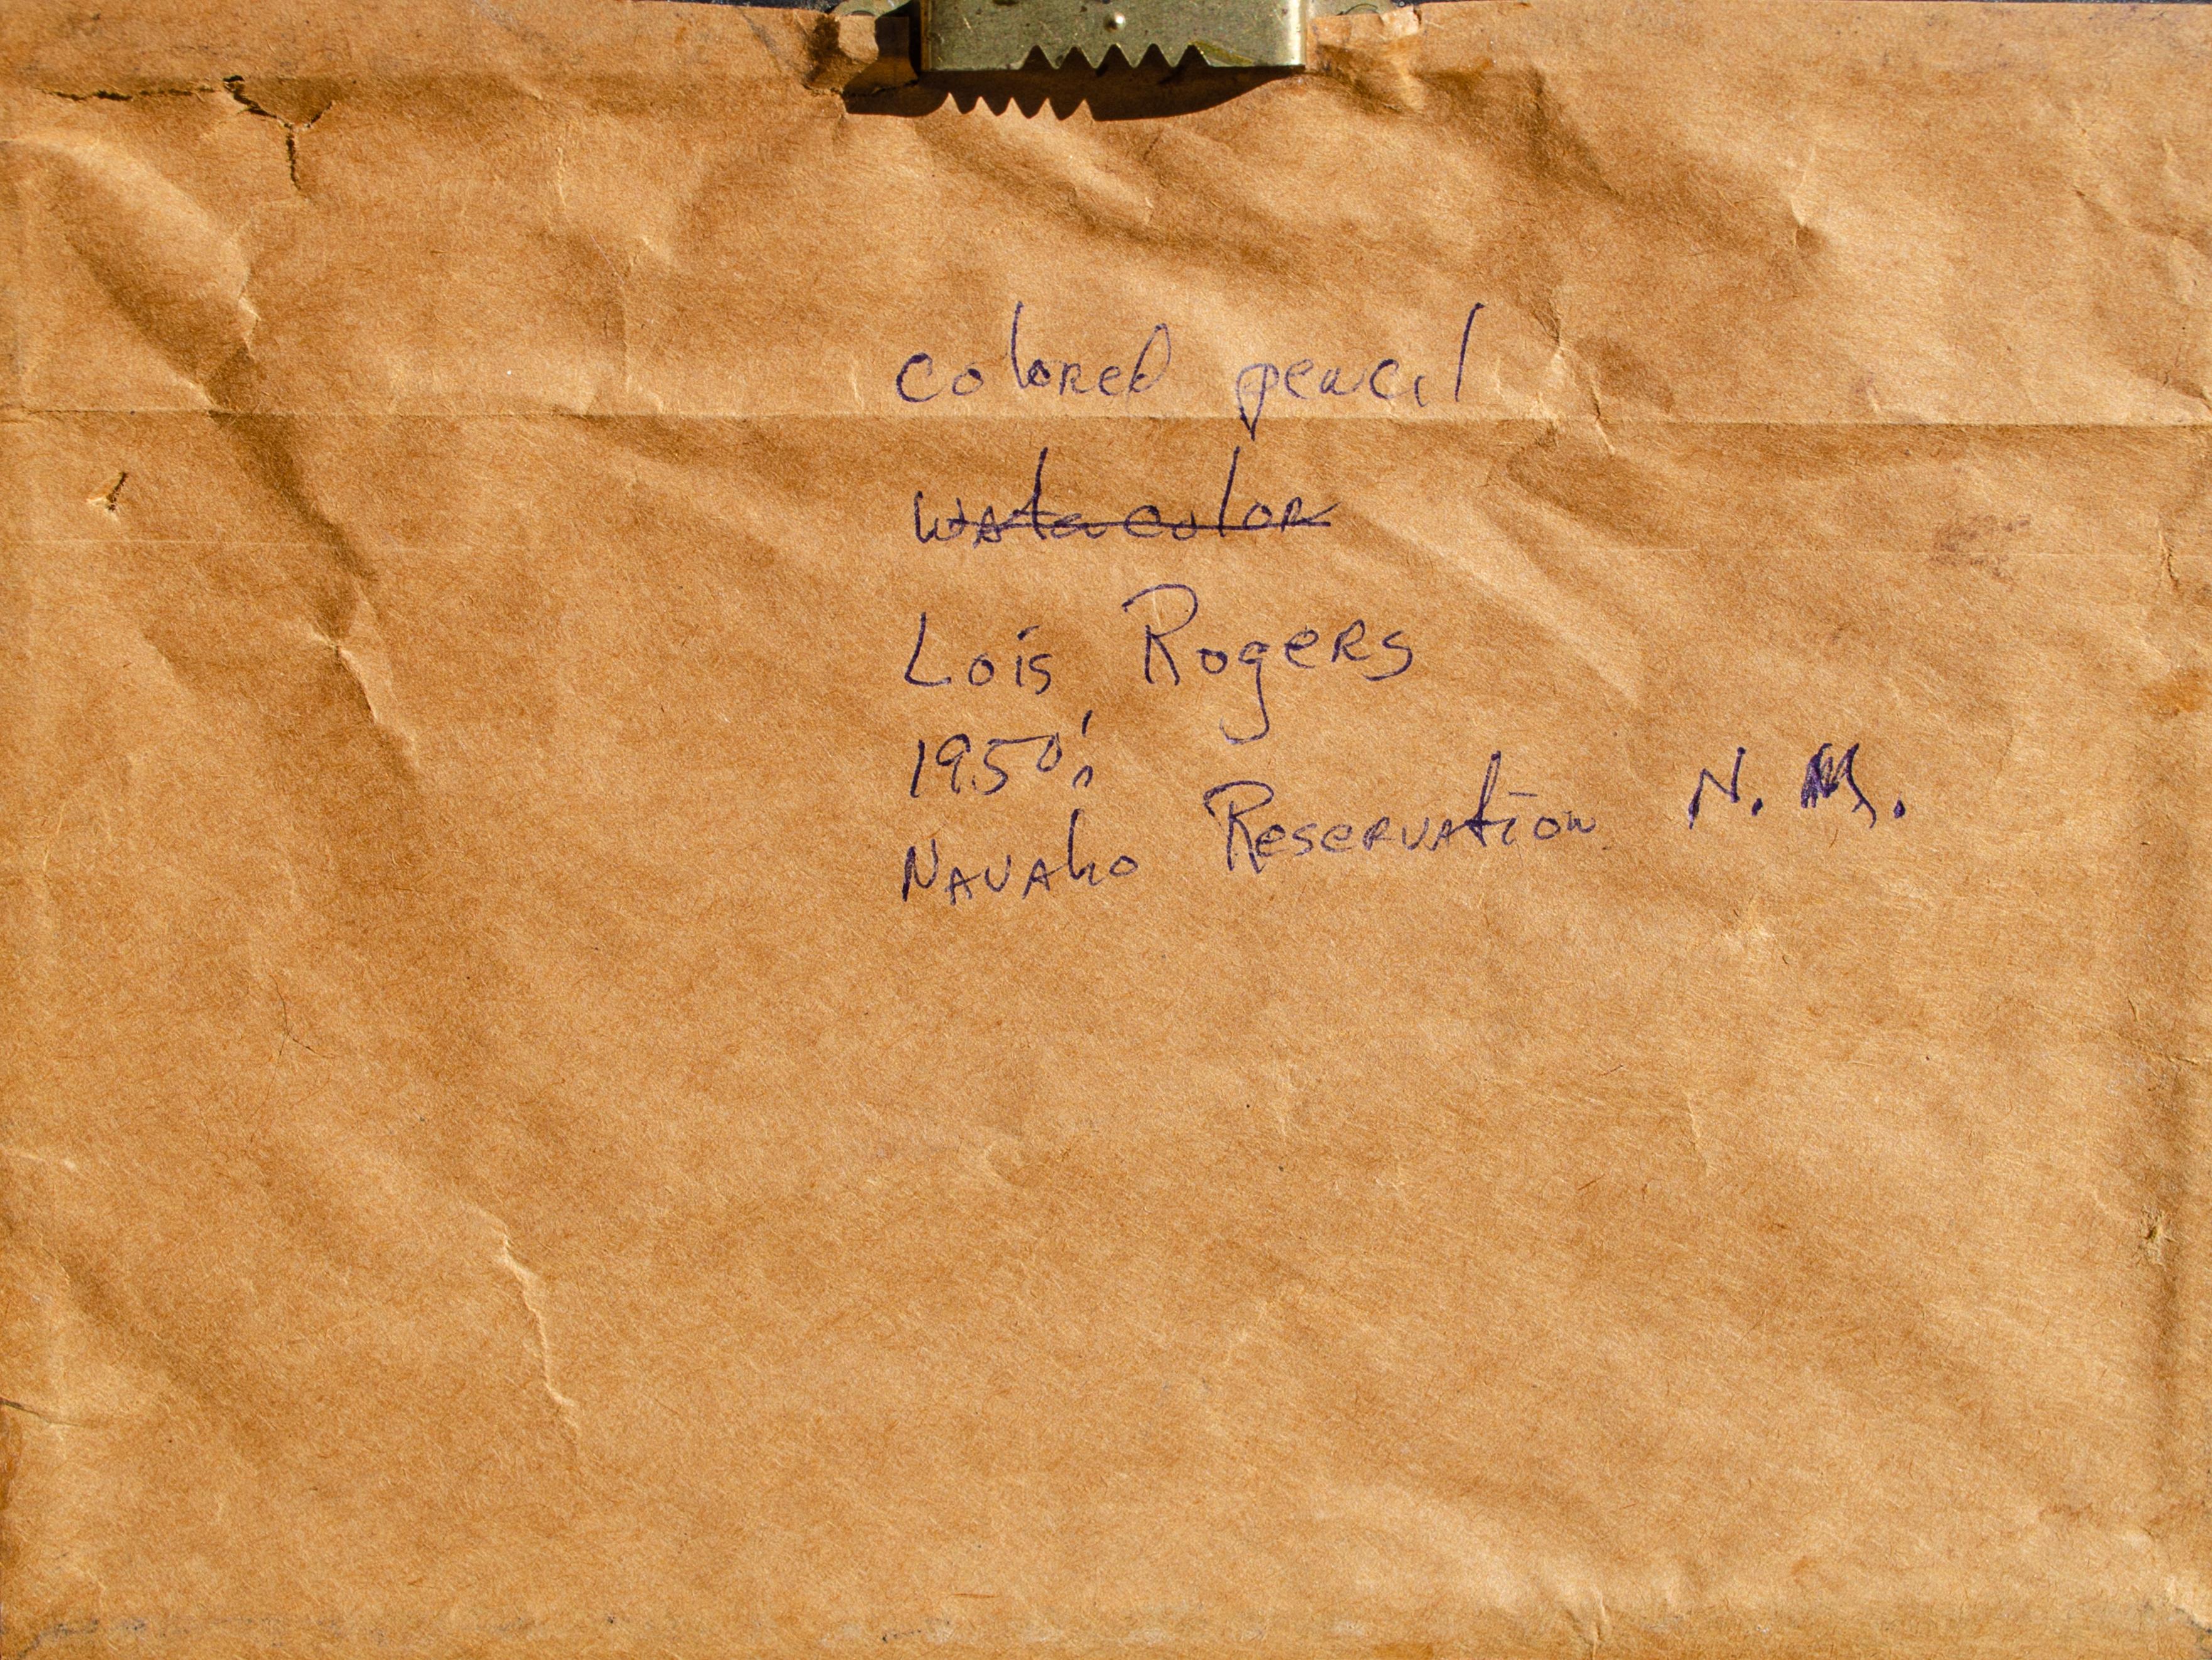 colored pencil
watercolor
Lois Rogers
1950's
Navaho Reservation N. M.